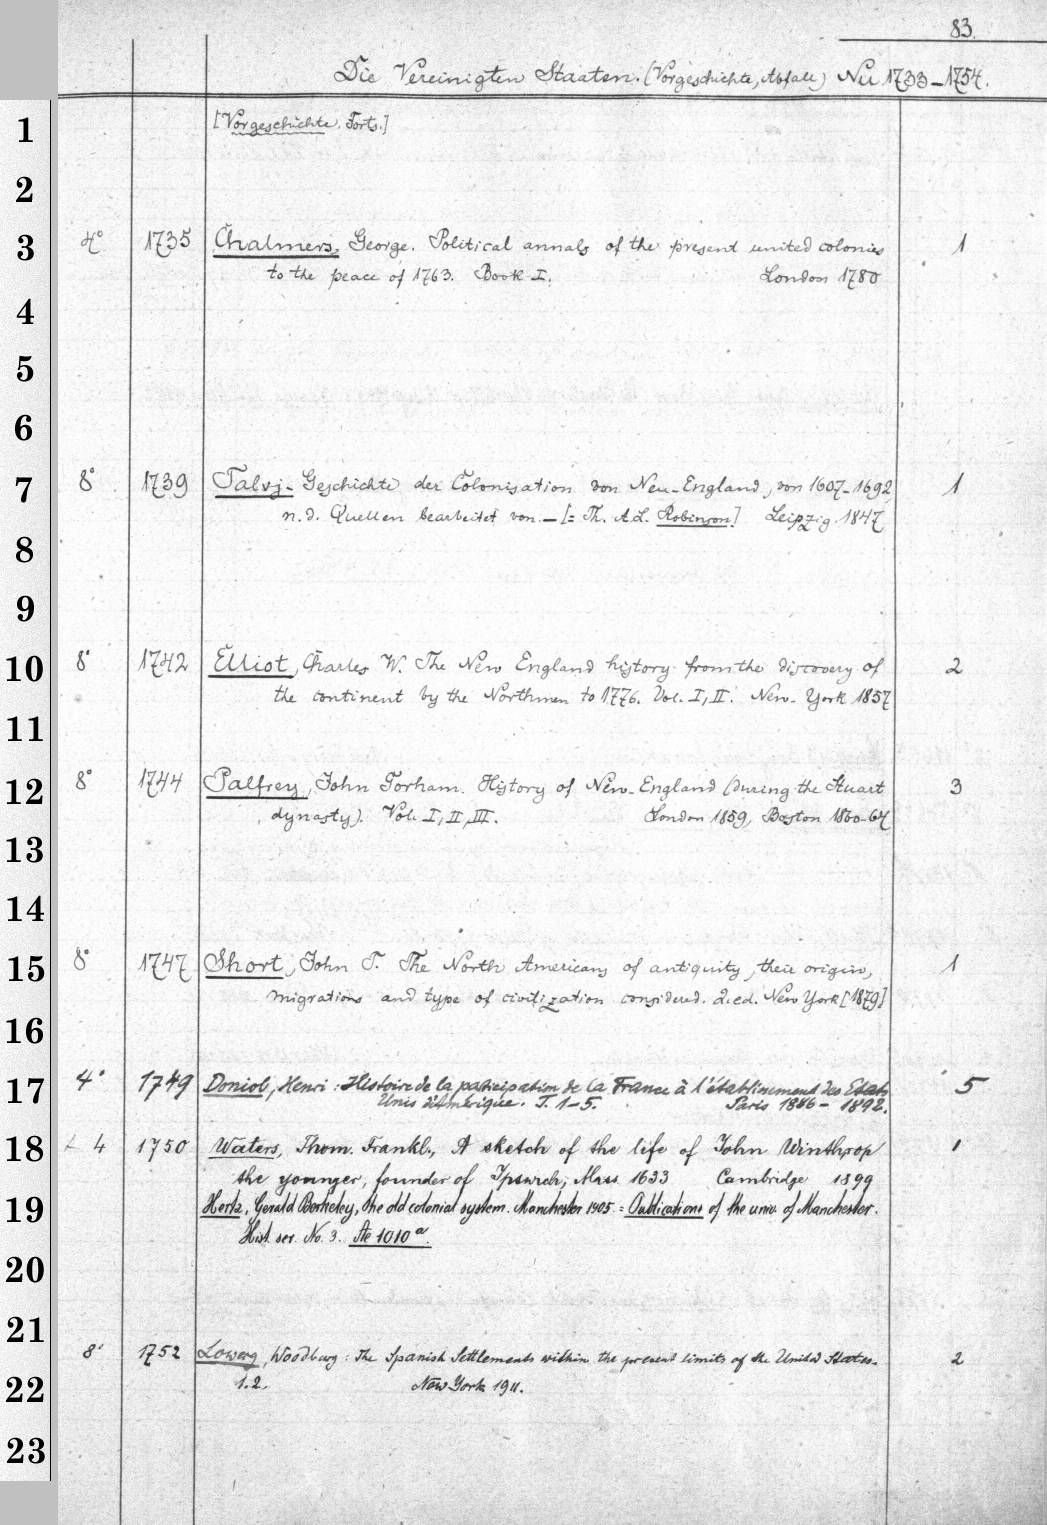 83.
Die Vereinigten Staaten. (Vorgeschichte, Abfall) Nu 1733-1754.
1 [Vorgeschichte. Forts.]
2
3 4° 1735 Chalmers, George. Political annals of the present united colonies 1
to the peace of 1763. Book I. London 1780
4
5
6
7 8° 1739 Talvj - Geschichte der Colonisation von Neu-England, von 1607-1692 1
n. d. Quellen bearbeitet von - [= Th. A. L. Robinson] Leipzig 1847
8
9
10 8° 1742 Elliot, Charles W. The New England history from the discovery of 2
the continent by the Northmen to 1776. Vol. I, II. New-York 1857
11
12 8° 1744 Palfrey, John Gorham. History of New-England (during the Stuart 3
dynasty). Vol. I, II, III. London 1859, Boston 1860-64
13
14
15 8° 1747 Short, John T. The North Americans of antiquity, their origin, 1
migrations and type of civilization considered. 2. ed. New York [1879]
16
17 4° 1749 Doniol, Henri: Histoire de la participation de la France à l'établissement des Etats 5
Unis d'Amérique. T. 1-5. Paris 1886-1892.
18 4 1750 Waters, Thom. Frankl., A sketch of the life of John Winthrop 1
the younger, founder of Ipswich, Mass. 1633 Cambridge 1899
19 Hertz, Gerald Berkeley, the old colonial system. Manchester 1905 = Publications of the univ. of Manchester.
Hist. ser. No. 3. Ae 1010 a.
20
21
8° 1752 Lowery, Woodbury: The Spanish Settlements within the present limits of the United States. 2
22 1.2. New York 1911.
23